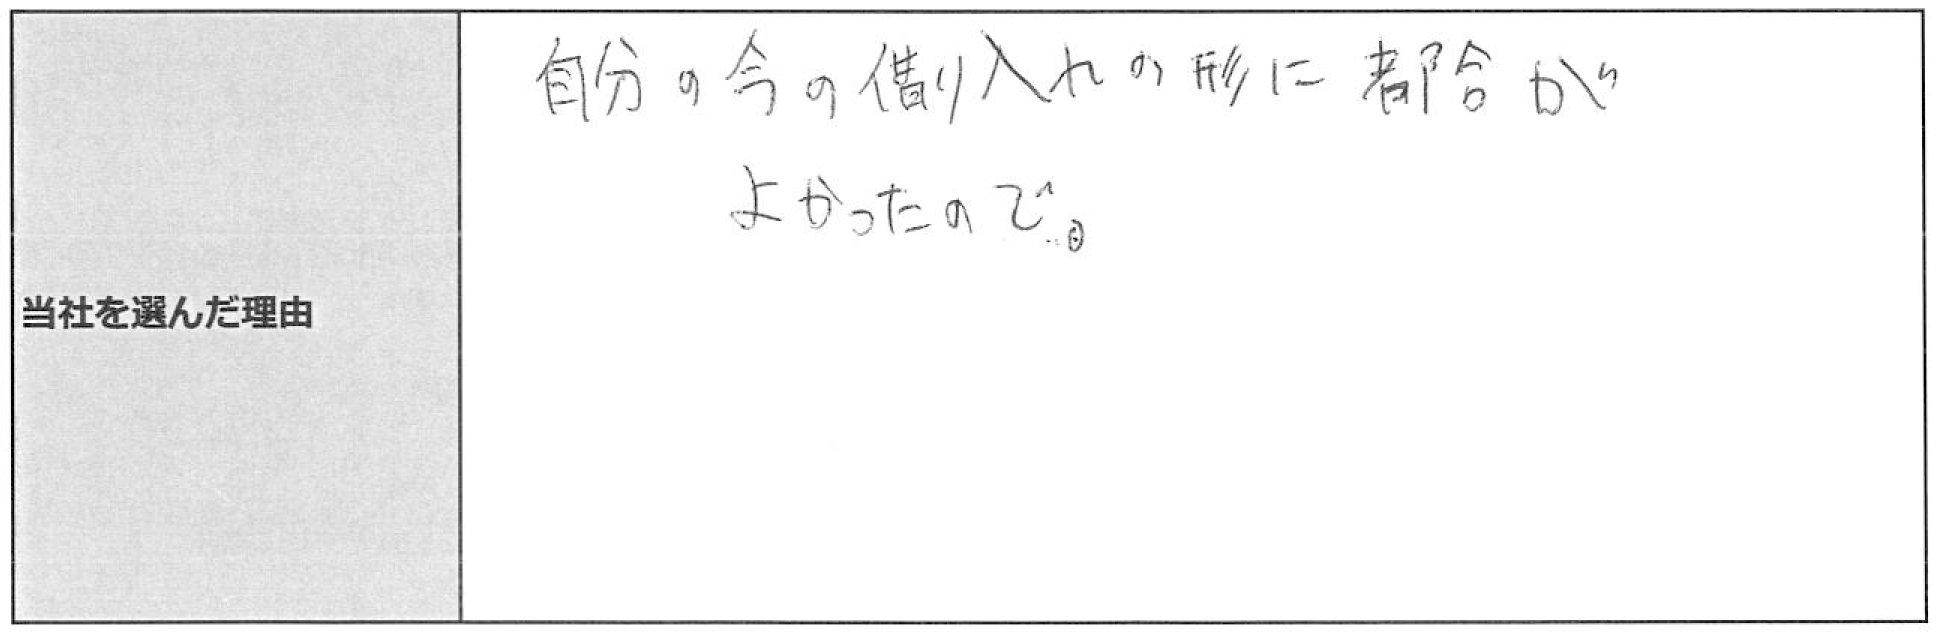 当社を選んだ理由
自分の今の借り入れの形に都合が
よかったので。